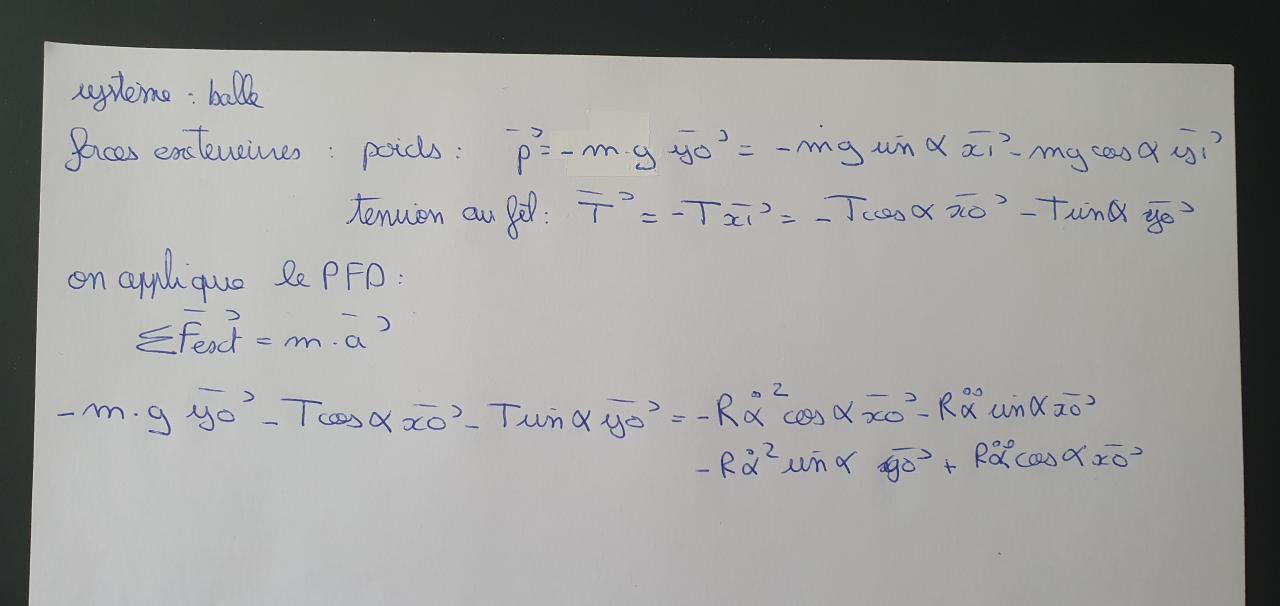 système : balle
forces exterieures : poids : p⃗ = - m . g y0⃗ = - mg sin α x1⃗ - mg cos α y1⃗
tension au fil : T⃗ = - T x1⃗ = - T cos α x0⃗ - T sin α y0⃗
on applique le PFD :
Σ F⃗ext = m . a⃗
- m . g y0⃗ - T cos α x0⃗ - T sin α y0⃗ = - R α̇² cos α x0⃗ - R α̈ sin α x0⃗
- R α̇² sin α y0⃗ + R α̈ cos α x0⃗